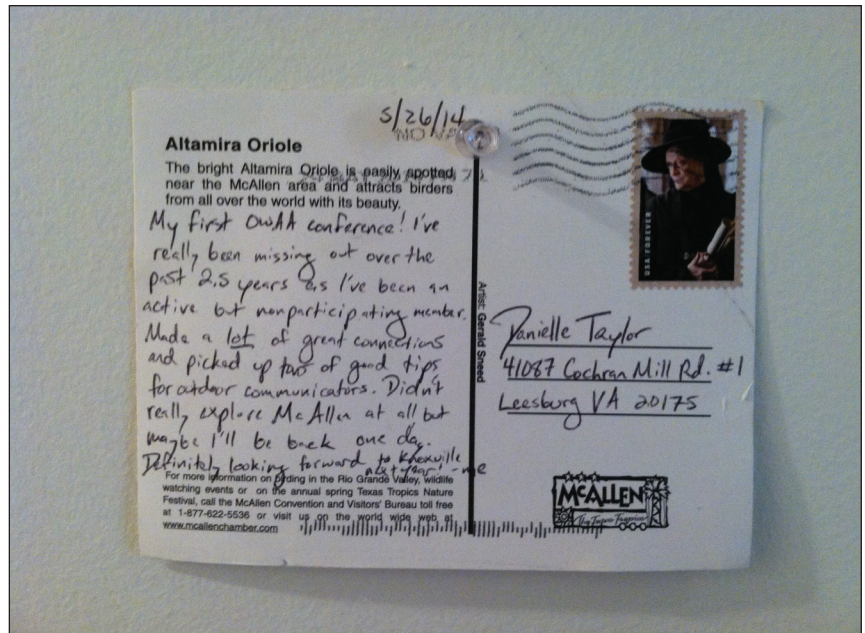 5/26/14
NO VA
Altamira Oriole
The bright Altamira Oriole is easily spotted
near the McAllen area and attracts birders
from all over the world with its beauty.
My first OWAA conference! I've
really been missing out over the
past 2.5 years as I've been an
active but nonparticipating member.
Made a lot of great connections
and picked up tons of good tips
for outdoor communicators. Didn't
really explore McAllen at all but
maybe I'll be back one day.
Definitely looking forward to Knoxville
next year! -me
For more information on birding in the Rio Grande Valley, wildlife
watching events or on the annual spring Texas Tropics Nature
Festival, call the McAllen Convention and Visitors' Bureau toll free
at 1-877-622-5536 or visit us on the world wide web at
www.mcallenchamber.com
Artist: Gerald Sneed
USA FOREVER
Danielle Taylor
41087 Cochran Mill Rd. #1
Leesburg VA 20175
McALLEN